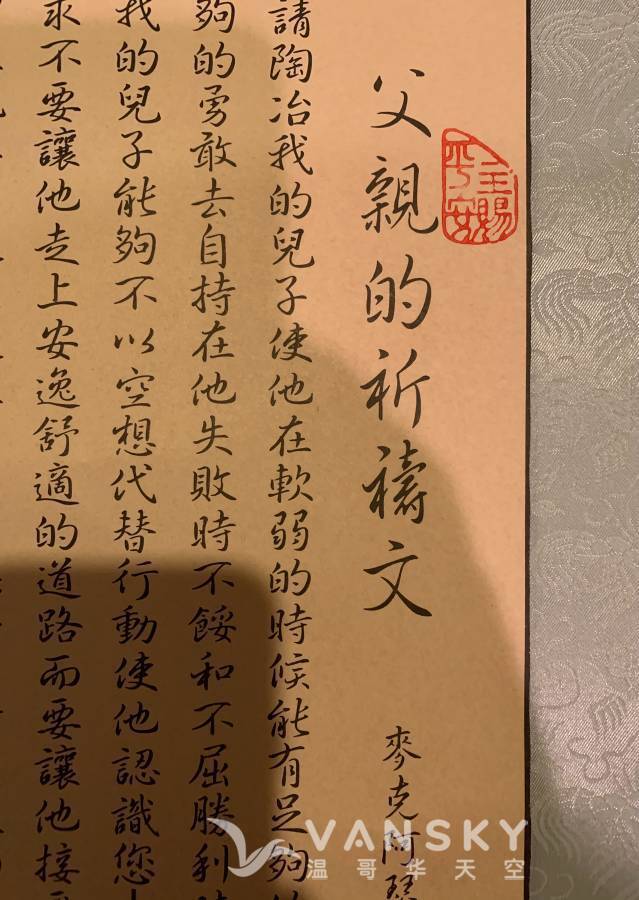 父親的祈禱文
麥克阿瑟
主賜平安
請陶冶我的兒子使他在軟弱的時候能有足夠的
夠的勇敢去自持在他失敗時不餒和不屈勝利
我的兒子能夠不以空想代替行動使他認識您
求不要讓他走上安逸舒適的道路而要讓他接
VANSKY
温哥华天空